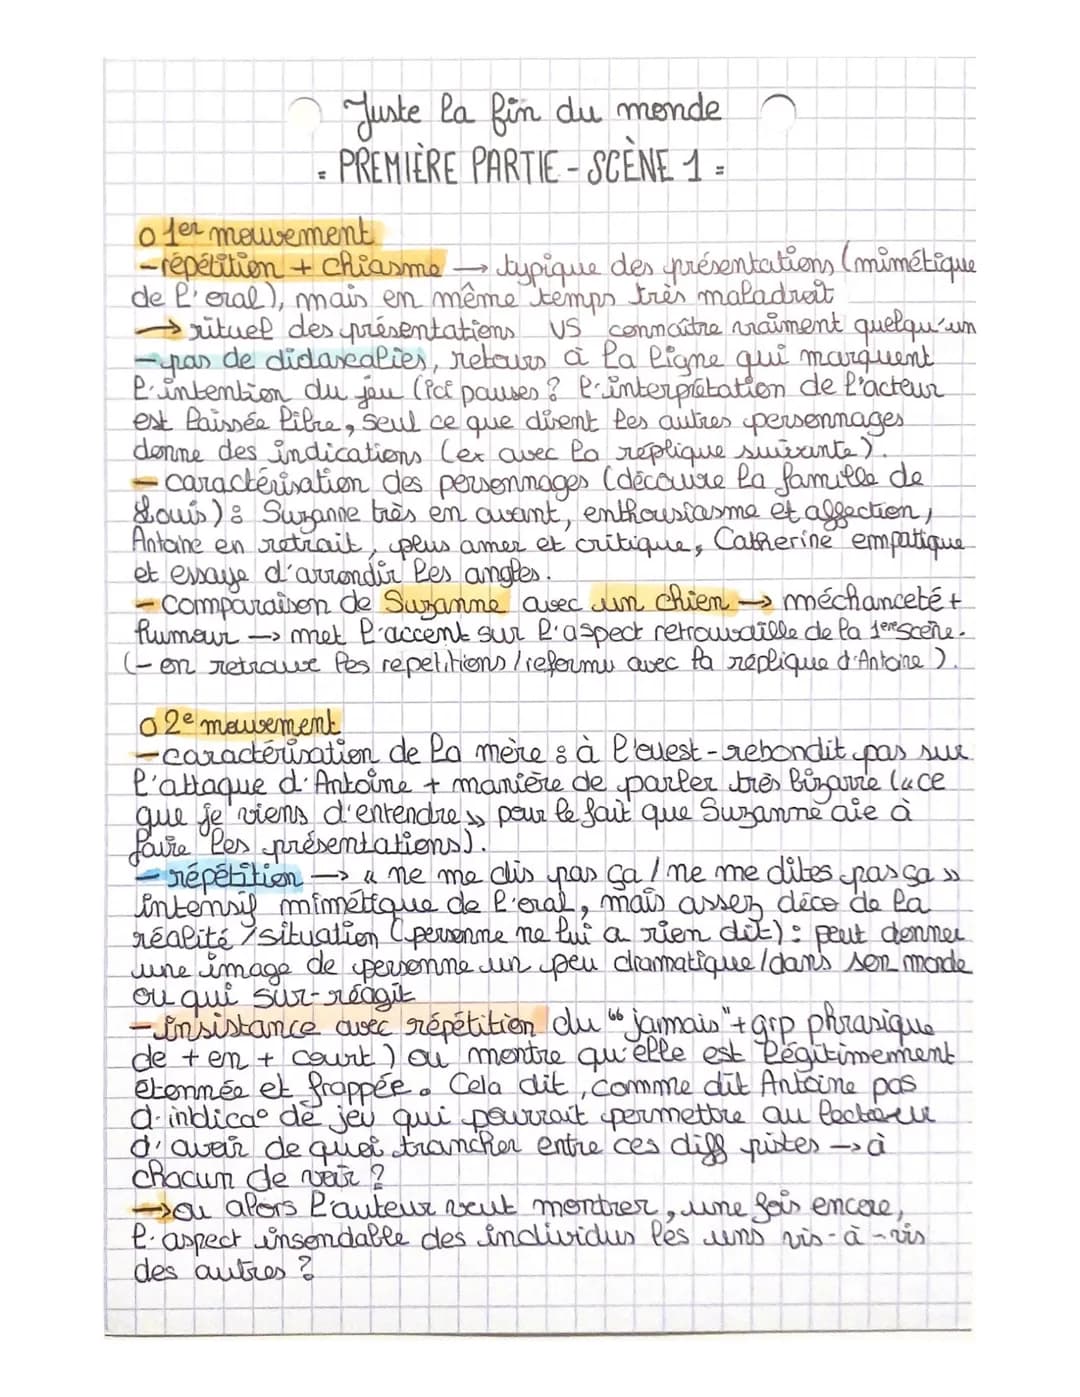 Juste la fin du monde
= PREMIÈRE PARTIE - SCÈNE 1 =
o 1er mouvement
- répétition + chiasme → typique des présentations (mimétique
de l'oral), mais en même temps très maladroit
→ rituel des présentations VS connaître vraiment quelqu'un
- pas de didascalies, retours à la ligne qui marquent
l'intention du jeu (ici pauses ? l'interprétation de l'acteur
est laissée libre, seul ce que disent les autres personnages
donne des indications (ex avec la réplique suivante).
- caractérisation des personnages (découvre la famille de
Louis) : Suzanne très en avant, enthousiasme et affection,
Antoine en retrait, plus amer et critique, Catherine empatique
et essaye d'arrondir les angles.
- Comparaison de Suzanne avec un chien → méchanceté +
humour → met l'accent sur l'aspect retrouvaille de la 1ere scène.
(- on retrouve les repetitions / reformu avec la réplique d'Antoine).
o 2e mouvement
- caractérisation de la mère : à l'ouest - rebondit pas sur
l'attaque d'Antoine + manière de parler très bizarre (« ce
que je viens d'entendre » pour le fait que Suzanne aie à
faire les présentations).
- répétition → « ne me dis pas ça / ne me dites pas ça »
intensif mimétique de l'oral, mais assez déco de la
réalité / situation (personne ne lui a rien dit) : peut donner
une image de personne un peu dramatique / dans son monde
ou qui sur-réagit
- Insistance avec répétition du "jamais" + grp phrasique
de + en + court) ou montre qu'elle est légitimement
étonnée et frappée. Cela dit, comme dit Antoine pas
d'indica° de jeu qui pourrait permettre au lecteur
d'avoir de quoi trancher entre ces diff pistes → à
chacun de voir ?
→ ou alors l'auteur veut montrer, une fois encore,
l'aspect insondable des individus les uns vis-à-vis
des autres ?